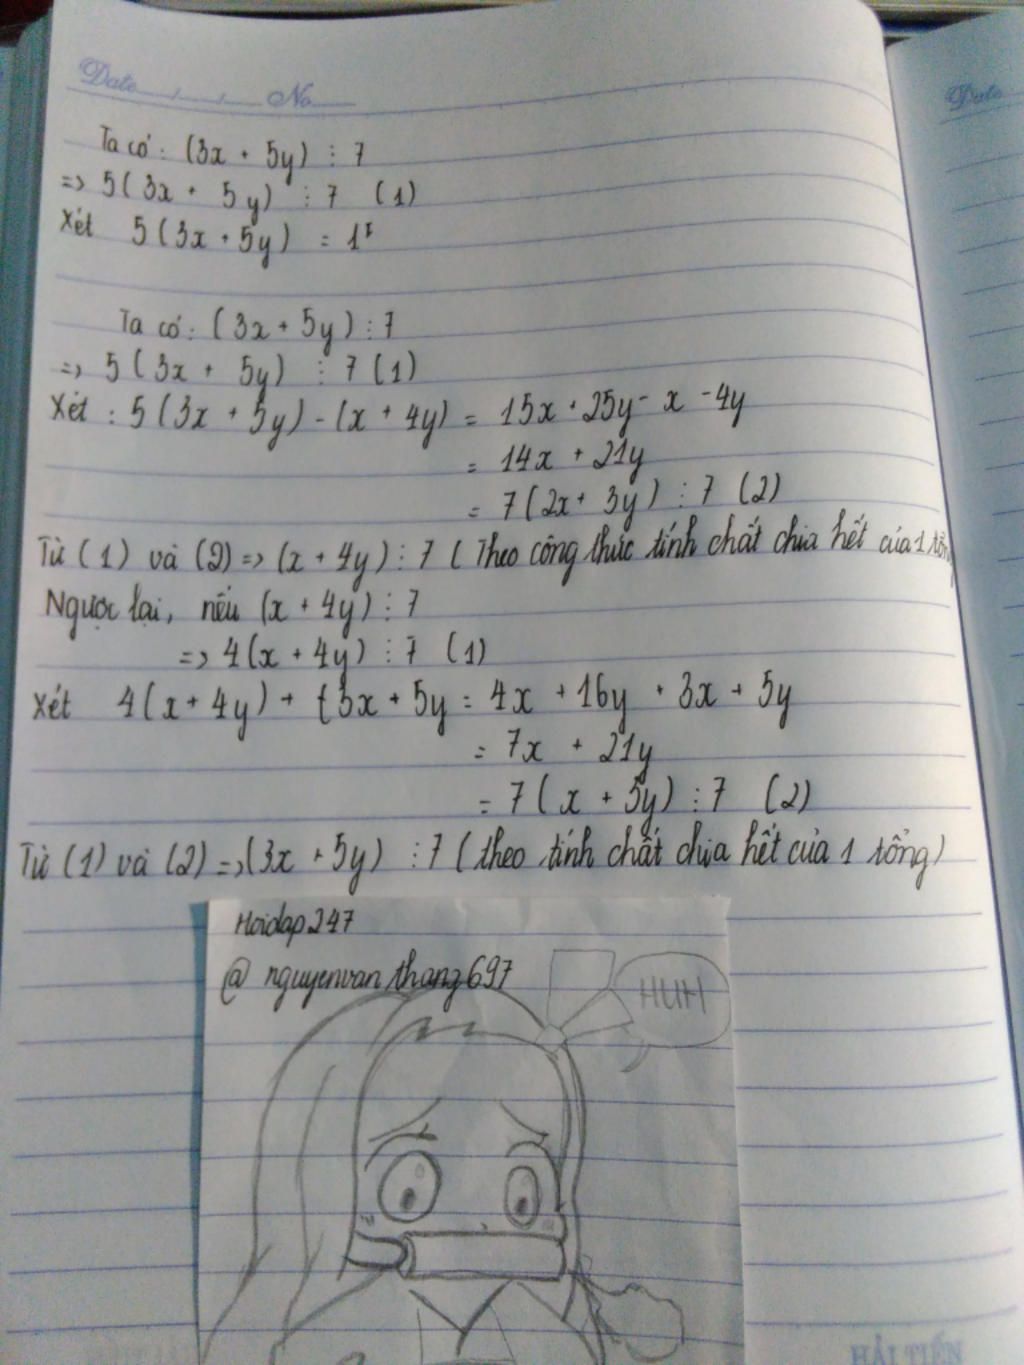 Date No
Date
Ta có: (3x + 5y) ⋮ 7
=> 5(3x + 5y) ⋮ 7 (1)
Xét 5(3x + 5y) = 1
Ta có: (3x + 5y) ⋮ 7
=> 5(3x + 5y) ⋮ 7 (1)
Xét : 5(3x + 5y) - (x + 4y) = 15x + 25y - x - 4y
= 14x + 21y
= 7(2x + 3y) ⋮ 7 (2)
Từ (1) và (2) => (x + 4y) ⋮ 7 (Theo công thức tính chất chia hết của 1 tổn
Ngược lại, nếu (x + 4y) ⋮ 7
=> 4(x + 4y) ⋮ 7 (1)
Xét 4(x + 4y) + (3x + 5y = 4x + 16y + 3x + 5y
= 7x + 21y
= 7(x + 3y) ⋮ 7 (2)
Từ (1) và (2) => (3x + 5y) ⋮ 7 (theo tính chất chia hết của 1 tổng)
Hoidap247
@ nguyenvanthang697
HUH
HẢI TIẾN